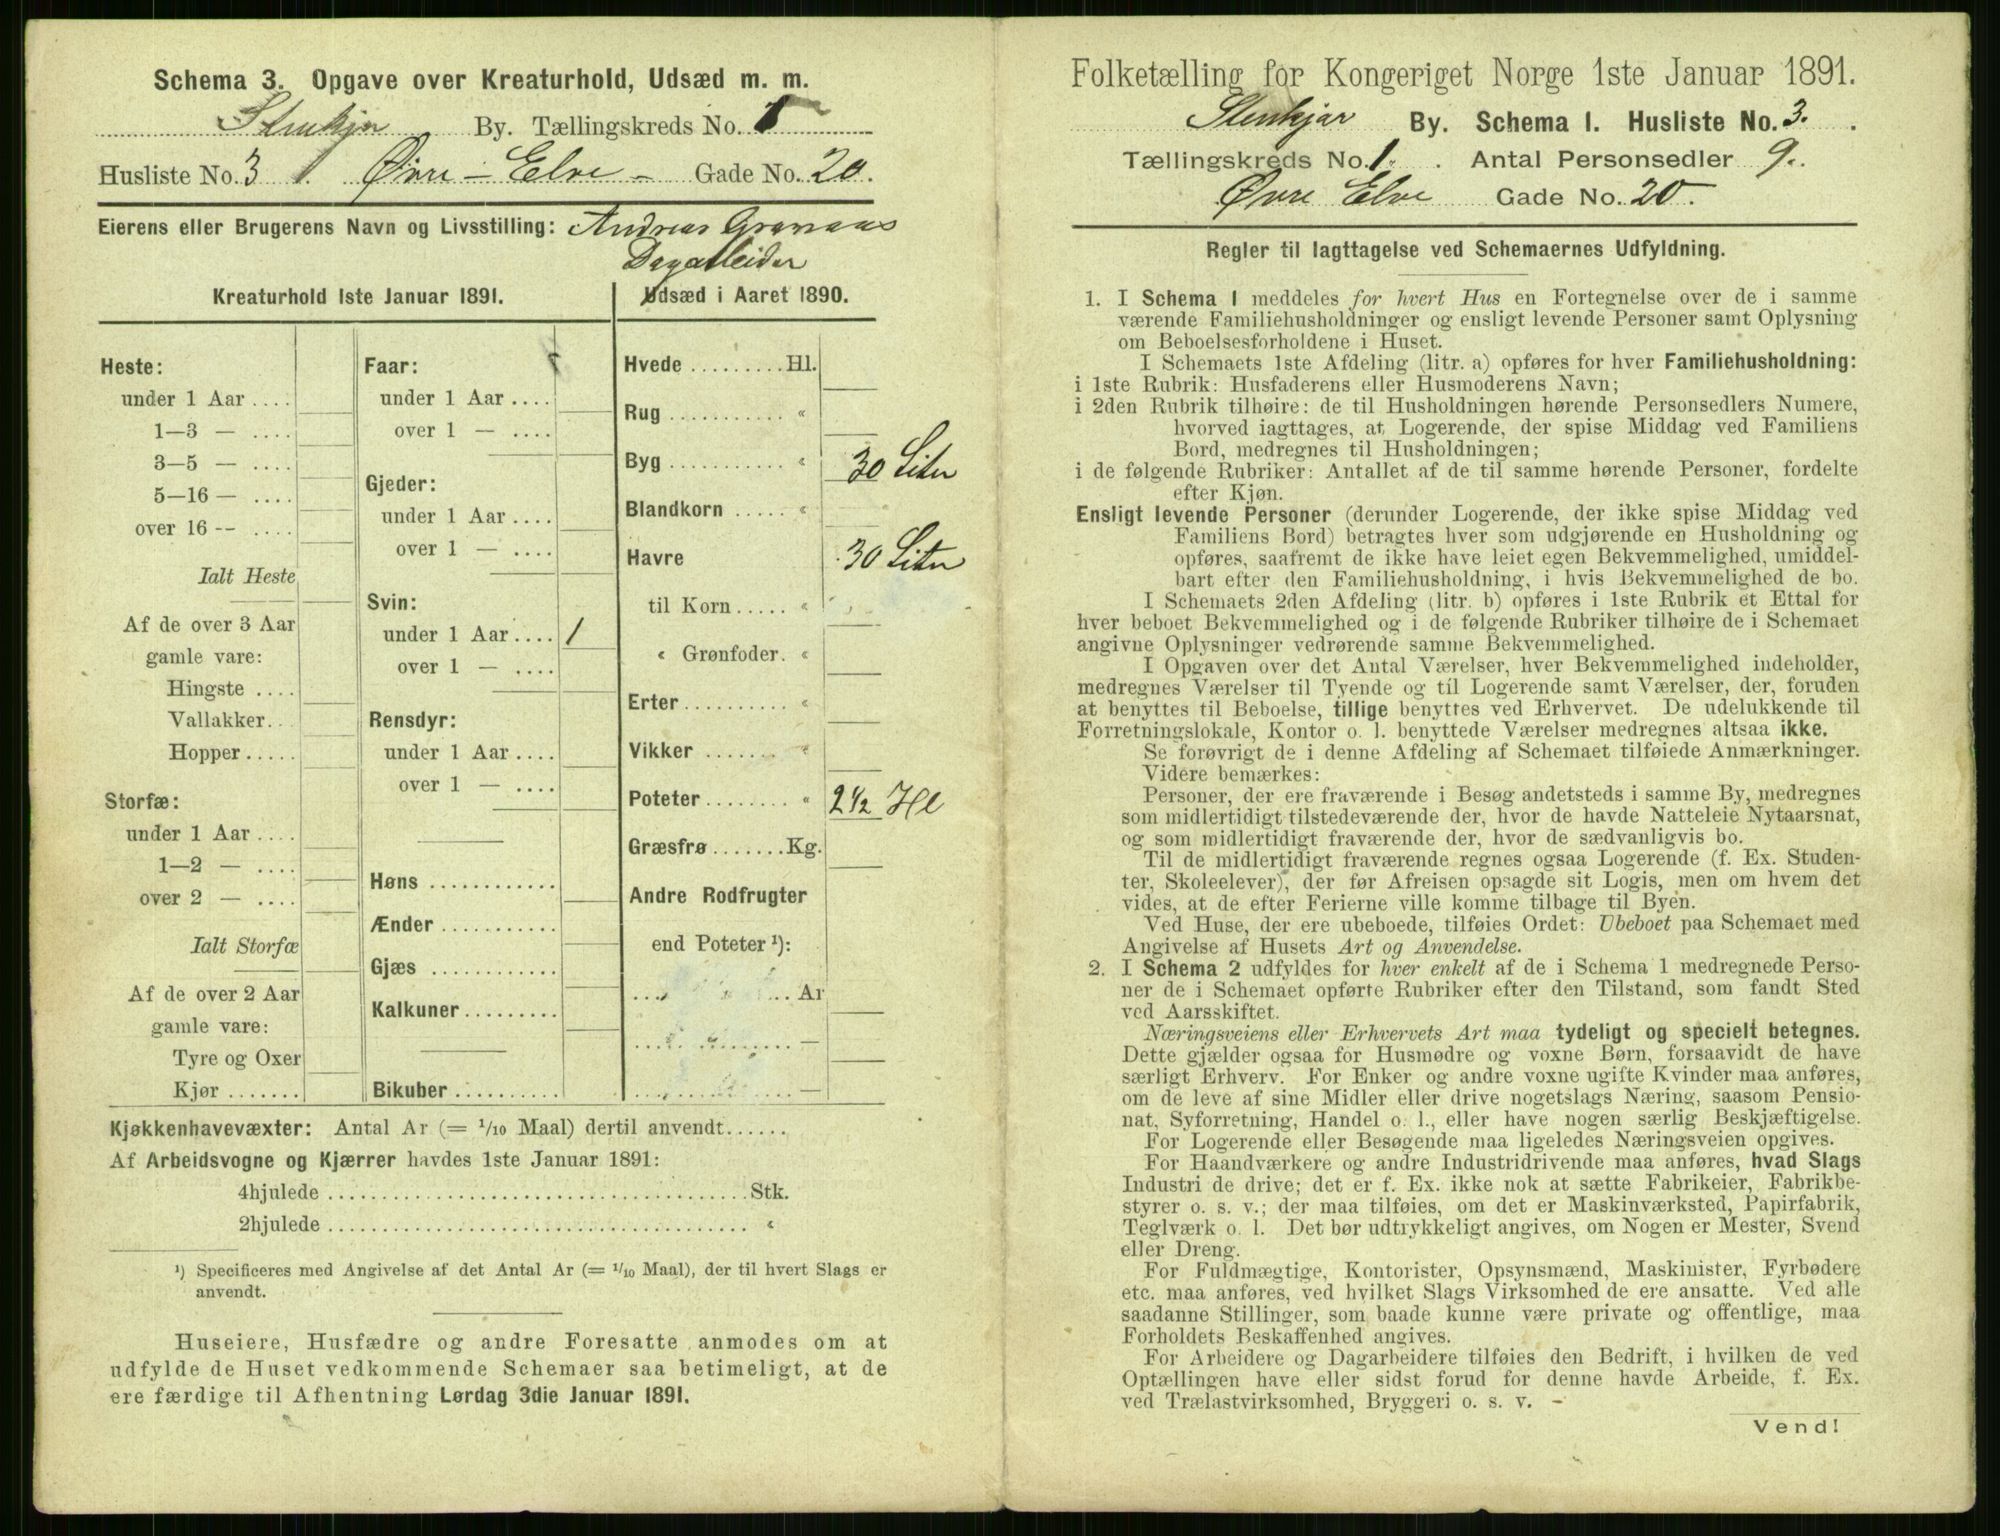 Schema 3. Opgave over Kreaturhold, Udsæd m. m.
Stenkjær By. Tællingskreds No. 1
Husliste No. 3 Øvre - Elve - Gade No. 20.
Eierens eller Brugerens Navn og Livsstilling: Andreas Granaas
Dagarbeider
Kreaturhold 1ste Januar 1891.
Heste:
under 1 Aar ....
1—3 — ....
3—5 — ....
5—16 — ....
over 16 -- ....
Ialt Heste
Af de over 3 Aar
gamle vare:
Hingste ....
Vallakker..
Hopper.....
Storfæ:
under 1 Aar ....
1—2 — ....
over 2 — ....
Ialt Storfæ
Af de over 2 Aar
gamle vare:
Tyre og Oxer
Kjør .......
Faar:
under 1 Aar ....
over 1 — ....
Gjeder:
under 1 Aar ....
over 1 — ....
Svin:
under 1 Aar .... 1
over 1 — ....
Rensdyr:
under 1 Aar ....
over 1 — ....
Høns ............
Ænder ...........
Gjæs ............
Kalkuner.........
Bikuber ..........
Udsæd i Aaret 1890.
Hvede .........Hl.
Rug ........... “
Byg ........... “ 30 Liter
Blandkorn ..... “
Havre 30 Liter
til Korn..... “
“ Grønfoder. “
Erter .......... “
Vikker ....... “
Poteter........ “ 2 1/2 Hl
Græsfrø .......Kg.
Andre Rodfrugter
end Poteter ¹):
.... Ar
.... —
.... —
Kjøkkenhavevæxter: Antal Ar (= 1/10 Maal) dertil anvendt......
Af Arbeidsvogne og Kjærrer havdes 1ste Januar 1891:
4hjulede ........................................Stk.
2hjulede ........................................ “
¹) Specificeres med Angivelse af det Antal Ar (= 1/10 Maal), der til hvert Slags er
anvendt.
Huseiere, Husfædre og andre Foresatte anmodes om at
udfylde de Huset vedkommende Schemaer saa betimeligt, at de
ere færdige til Afhentning Lørdag 3die Januar 1891.
Folketælling for Kongeriget Norge 1ste Januar 1891.
Stenkjær By. Schema 1. Husliste No. 3.
Tællingskreds No. 1. Antal Personsedler 9.
Øvre Elve Gade No. 20.
Regler til Iagttagelse ved Schemaernes Udfyldning.
1. I Schema 1 meddeles for hvert Hus en Fortegnelse over de i samme
værende Familiehusholdninger og ensligt levende Personer samt Oplysning
om Beboelsesforholdene i Huset.
I Schemaets 1ste Afdeling (litr. a) opføres for hver Familiehusholdning:
i 1ste Rubrik: Husfaderens eller Husmoderens Navn;
i 2den Rubrik tilhøire: de til Husholdningen hørende Personsedlers Numere,
hvorved iagttages, at Logerende, der spise Middag ved Familiens
Bord, medregnes til Husholdningen;
i de følgende Rubriker: Antallet af de til samme hørende Personer, fordelte
efter Kjøn.
Ensligt levende Personer (derunder Logerende, der ikke spise Middag ved
Familiens Bord) betragtes hver som udgjørende en Husholdning og
opføres, saafremt de ikke have leiet egen Bekvemmelighed, umiddel-
bart efter den Familiehusholdning, i hvis Bekvemmelighed de bo.
I Schemaets 2den Afdeling (litr. b) opføres i 1ste Rubrik et Ettal for
hver beboet Bekvemmelighed og i de følgende Rubriker tilhøire de i Schemaet
angivne Oplysninger vedrørende samme Bekvemmelighed.
I Opgaven over det Antal Værelser, hver Bekvemmelighed indeholder,
medregnes Værelser til Tyende og til Logerende samt Værelser, der, foruden
at benyttes til Beboelse, tillige benyttes ved Erhvervet. De udelukkende til
Forretningslokale, Kontor o. l. benyttede Værelser medregnes altsaa ikke.
Se forøvrigt de i denne Afdeling af Schemaet tilføiede Anmærkninger.
Videre bemærkes:
Personer, der ere fraværende i Besøg andetsteds i samme By, medregnes
som midlertidigt tilstedeværende der, hvor de havde Natteleie Nytaarsnat,
og som midlertidigt fraværende der, hvor de sædvanligvis bo.
Til de midlertidigt fraværende regnes ogsaa Logerende (f. Ex. Studen-
ter, Skoleelever), der før Afreisen opsagde sit Logis, men om hvem det
vides, at de efter Ferierne ville komme tilbage til Byen.
Ved Huse, der ere ubeboede, tilføies Ordet: Ubeboet paa Schemaet med
Angivelse af Husets Art og Anvendelse.
2. I Schema 2 udfyldes for hver enkelt af de i Schema 1 medregnede Perso-
ner de i Schemaet opførte Rubriker efter den Tilstand, som fandt Sted
ved Aarsskiftet.
Næringsveiens eller Erhvervets Art maa tydeligt og specielt betegnes.
Dette gjælder ogsaa for Husmødre og voxne Børn, forsaavidt de have
særligt Erhverv. For Enker og andre voxne ugifte Kvinder maa anføres,
om de leve af sine Midler eller drive nogetslags Næring, saasom Pensio-
nat, Syforretning, Handel o. l., eller have nogen særlig Beskjæftigelse.
For Logerende eller Besøgende maa ligeledes Næringsveien opgives.
For Haandværkere og andre Industridrivende maa anføres, hvad Slags
Industri de drive; det er f. Ex. ikke nok at sætte Fabrikeier, Fabrikbe-
styrer o. s. v.; der maa tilføies, om det er Maskinværksted, Papirfabrik,
Teglværk o. l. Det bør udtrykkeligt angives, om Nogen er Mester, Svend
eller Dreng.
For Fuldmægtige, Kontorister, Opsynsmænd, Maskinister, Fyrbødere
etc. maa anføres, ved hvilket Slags Virksomhed de ere ansatte. Ved alle
saadanne Stillinger, som baade kunne være private og offentlige, maa
Forholdets Beskaffenhed angives.
For Arbeidere og Dagarbeidere tilføies den Bedrift, i hvilken de ved
Optællingen have eller sidst forud for denne havde Arbeide, f. Ex.
ved Trælastvirksomhed, Bryggeri o. s. v.
Vend!